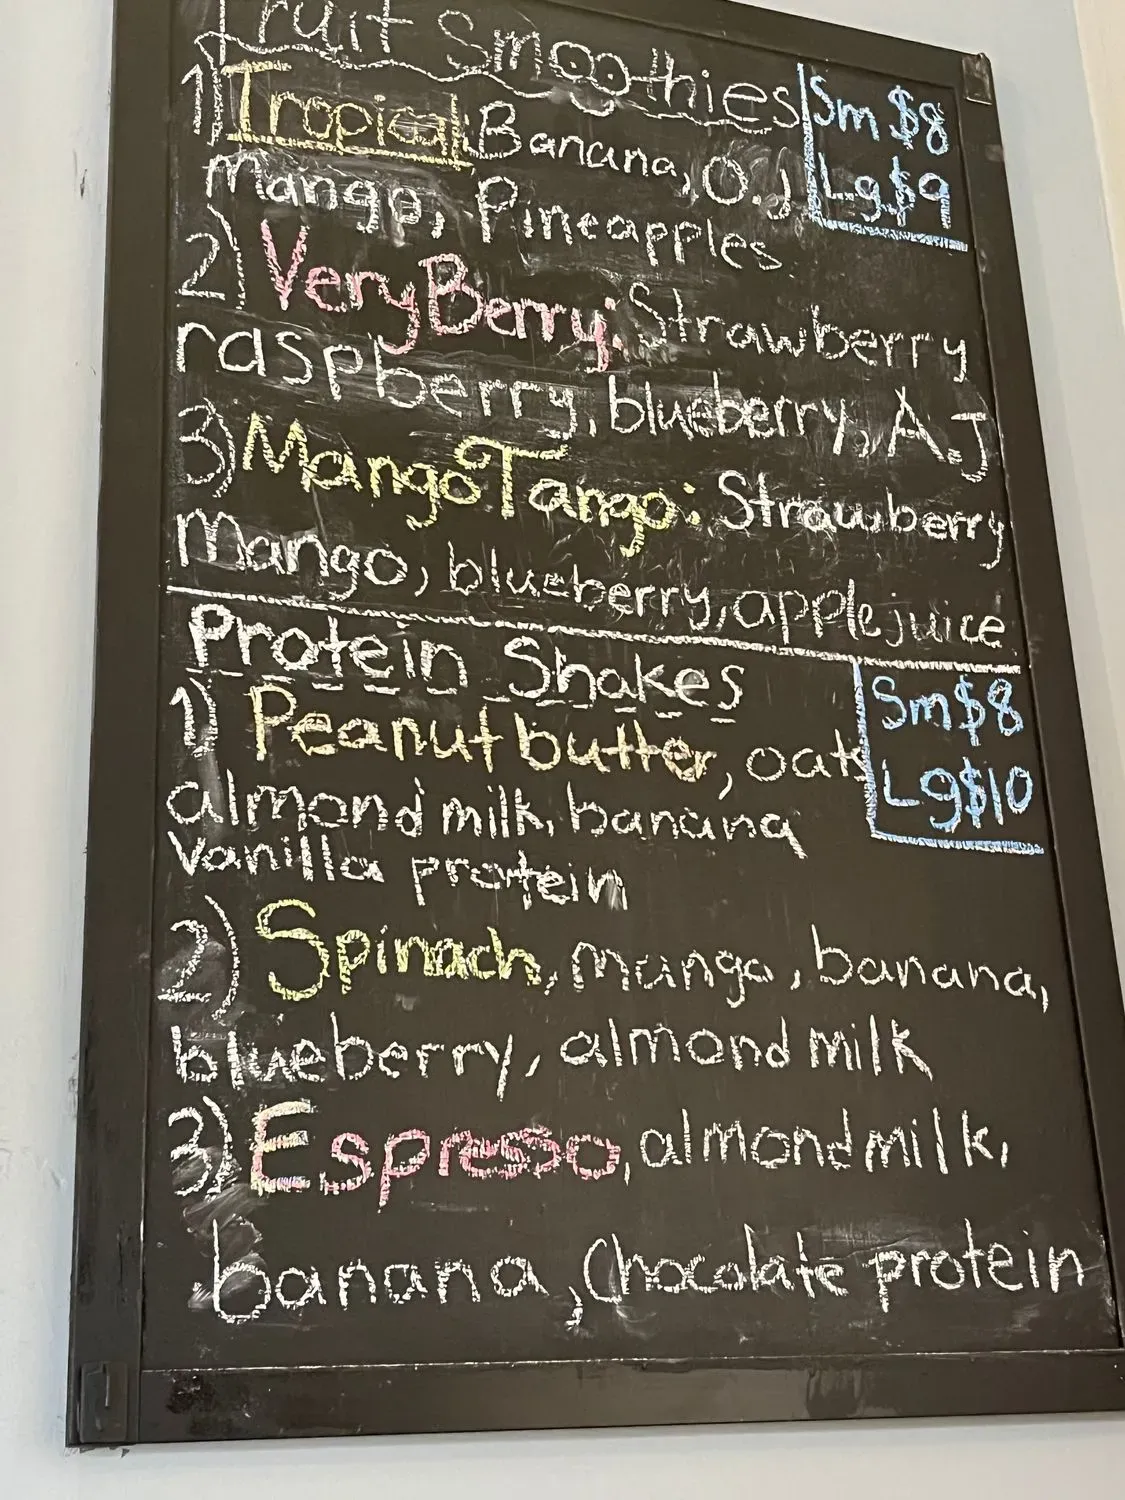 Fruit Smoothies
Sm $8
Lg $9
1) Tropical: Banana, O.J
mango, Pineapples
2) Very Berry: Strawberry
raspberry, blueberry, A.J
3) Mango Tango: Strawberry
Mango, blueberry, apple juice
Protein Shakes
Sm $8
Lg $10
1) Peanut butter, oats
almond milk, banana
Vanilla protein
2) Spinach, mango, banana,
blueberry, almond milk
3) Espresso, almond milk,
banana, Chocolate protein